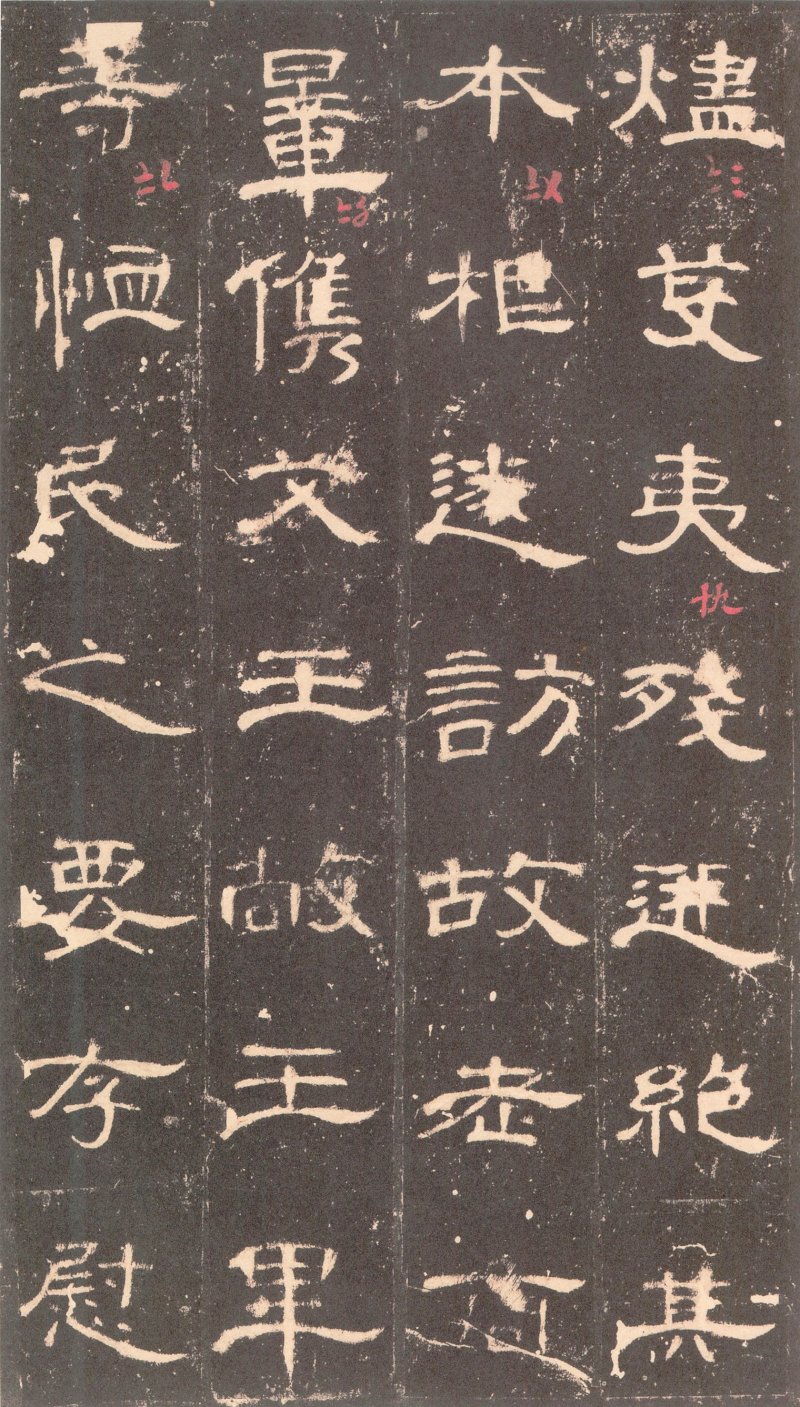 燼芟夷殘迸絶其
本根遂訪故老商
量儁艾王敞王畢
等恤民之要存慰